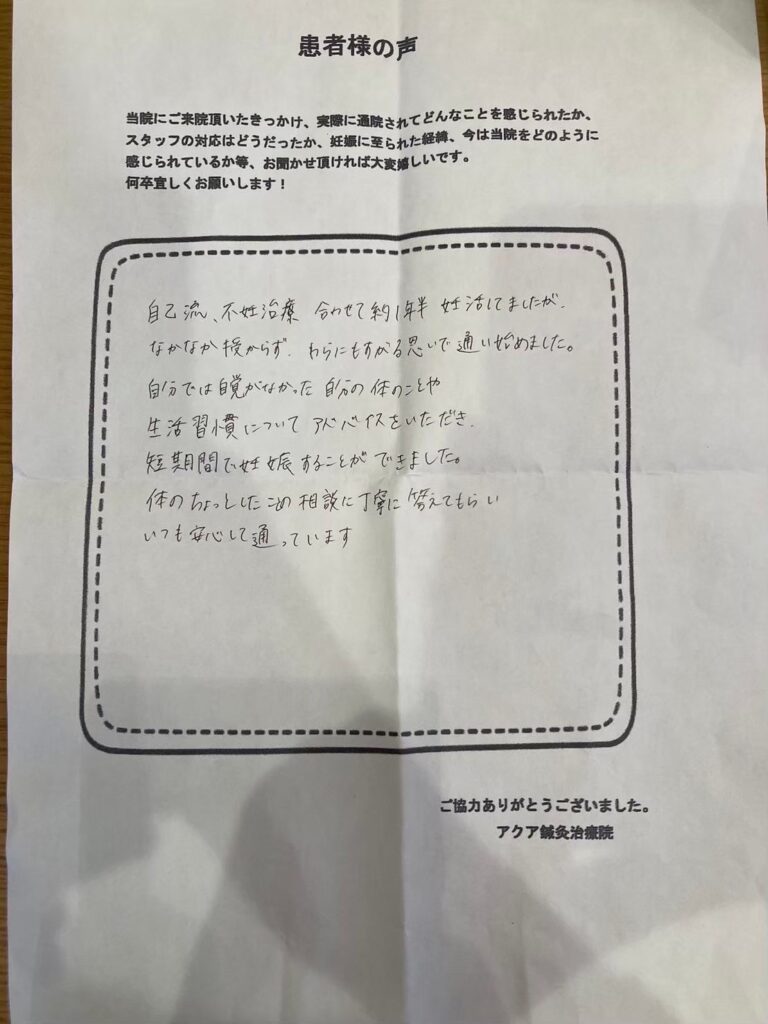 患者様の声
当院にご来院頂いたきっかけ、実際に通院されてどんなことを感じられたか、
スタッフの対応はどうだったか、妊娠に至られた経緯、今は当院をどのように
感じられているか等、お聞かせ頂ければ大変嬉しいです。
何卒宜しくお願いします！
自己流、不妊治療 合わせて約1年半 妊活してましたが、
なかなか授からず、わらにもすがる思いで通い始めました。
自分では自覚がなかった自分の体のことや
生活習慣について アドバイスをいただき、
短期間で妊娠することができました。
体のちょっとした 相談に丁寧に答えてもらい
いつも安心して通っています
ご協力ありがとうございました。
アクア鍼灸治療院